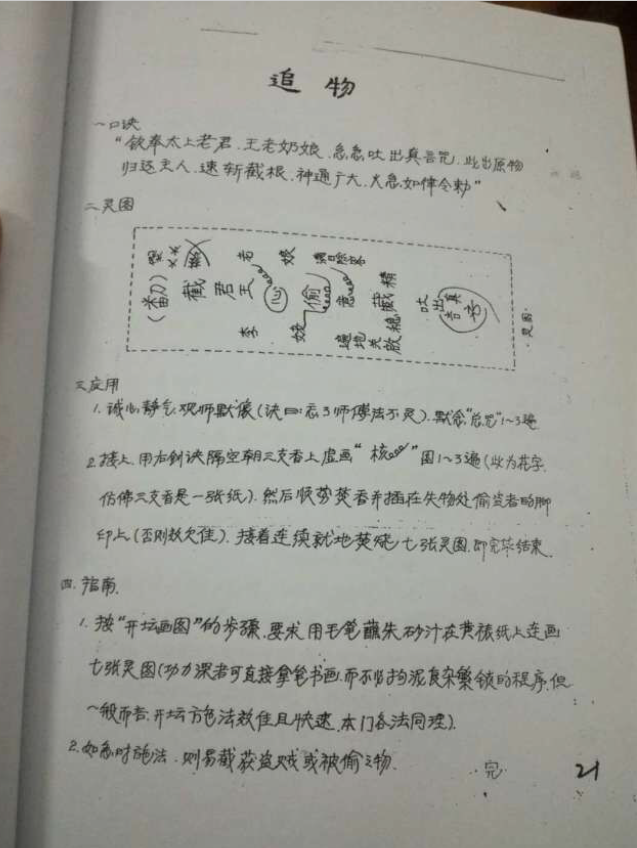 追物
一口诀
“敛奉太上老君.王老奶娘.急急吐出真言咒.此出原物
归还主人.速斩截根.神通广大.火急如律令勅”
二灵图
(翻)截君王偷急截精
老娘
李娆
吐出真言
灵图.
三应用
1.诚心静气.观师默像(诀曰:忘了师傅法不灵).默念“启咒”1~3遍
2.接上.用右剑诀隔空朝三支香上虚画“核”图1~3遍(此为花字.
仿佛三支香是一张纸).然后顺势焚香并插在失物处偷盗者的脚
印上(否则效欠佳).接着连续就地焚烧七张灵图.即完毕结束.
四.指南.
1.按“开坛画图”的步骤.要求用毛笔蘸朱砂汁在黄裱纸上连画
七张灵图(功力深者可直接拿笔书画.而不必拘泥复杂繁锁的程序.但
一般而言.开坛方色法效佳且快速.本门各法同理).
2.如急时施法.则易截获盗贼或被偷之物.
.完.
21